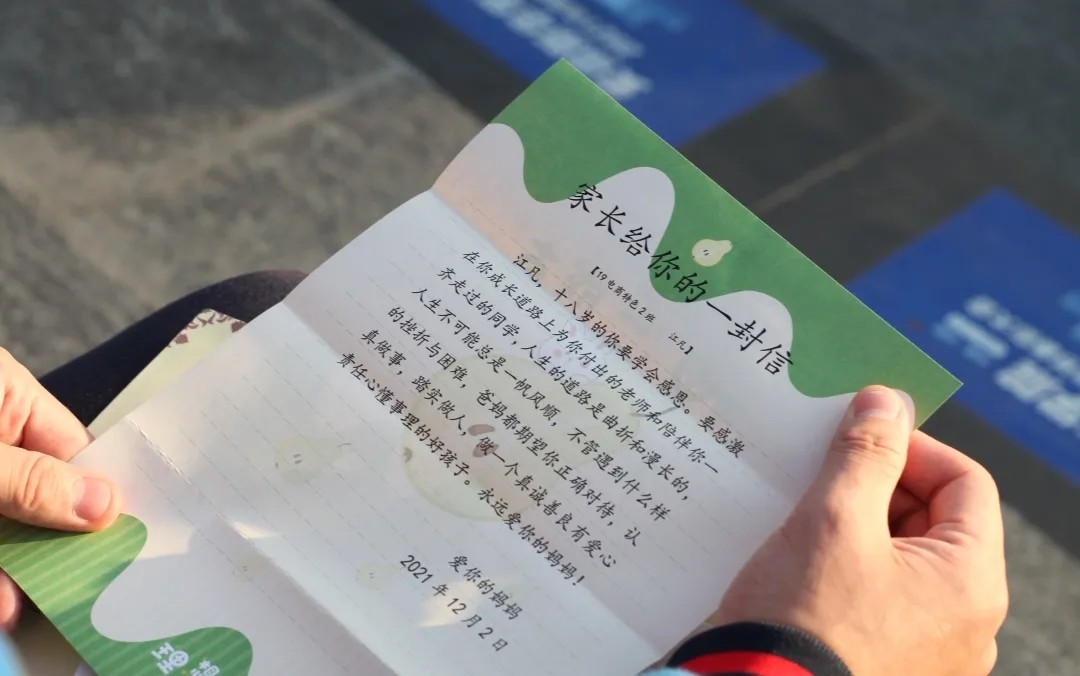 家长给你的一封信
【19电商特色2班 江凡】
江凡,十八岁的你要学会感恩。要感激
在你成长道路上为你付出的老师和陪伴你一
齐走过的同学,人生的道路是曲折和漫长的,
人生不可能总是一帆风顺,不管遇到什么样
的挫折与困难,爸妈都期望你正确对待,认
真做事,踏实做人,做一个真诚善良有爱心
责任心懂事理的好孩子。永远爱你的妈妈!
爱你的妈妈
2021年12月2日